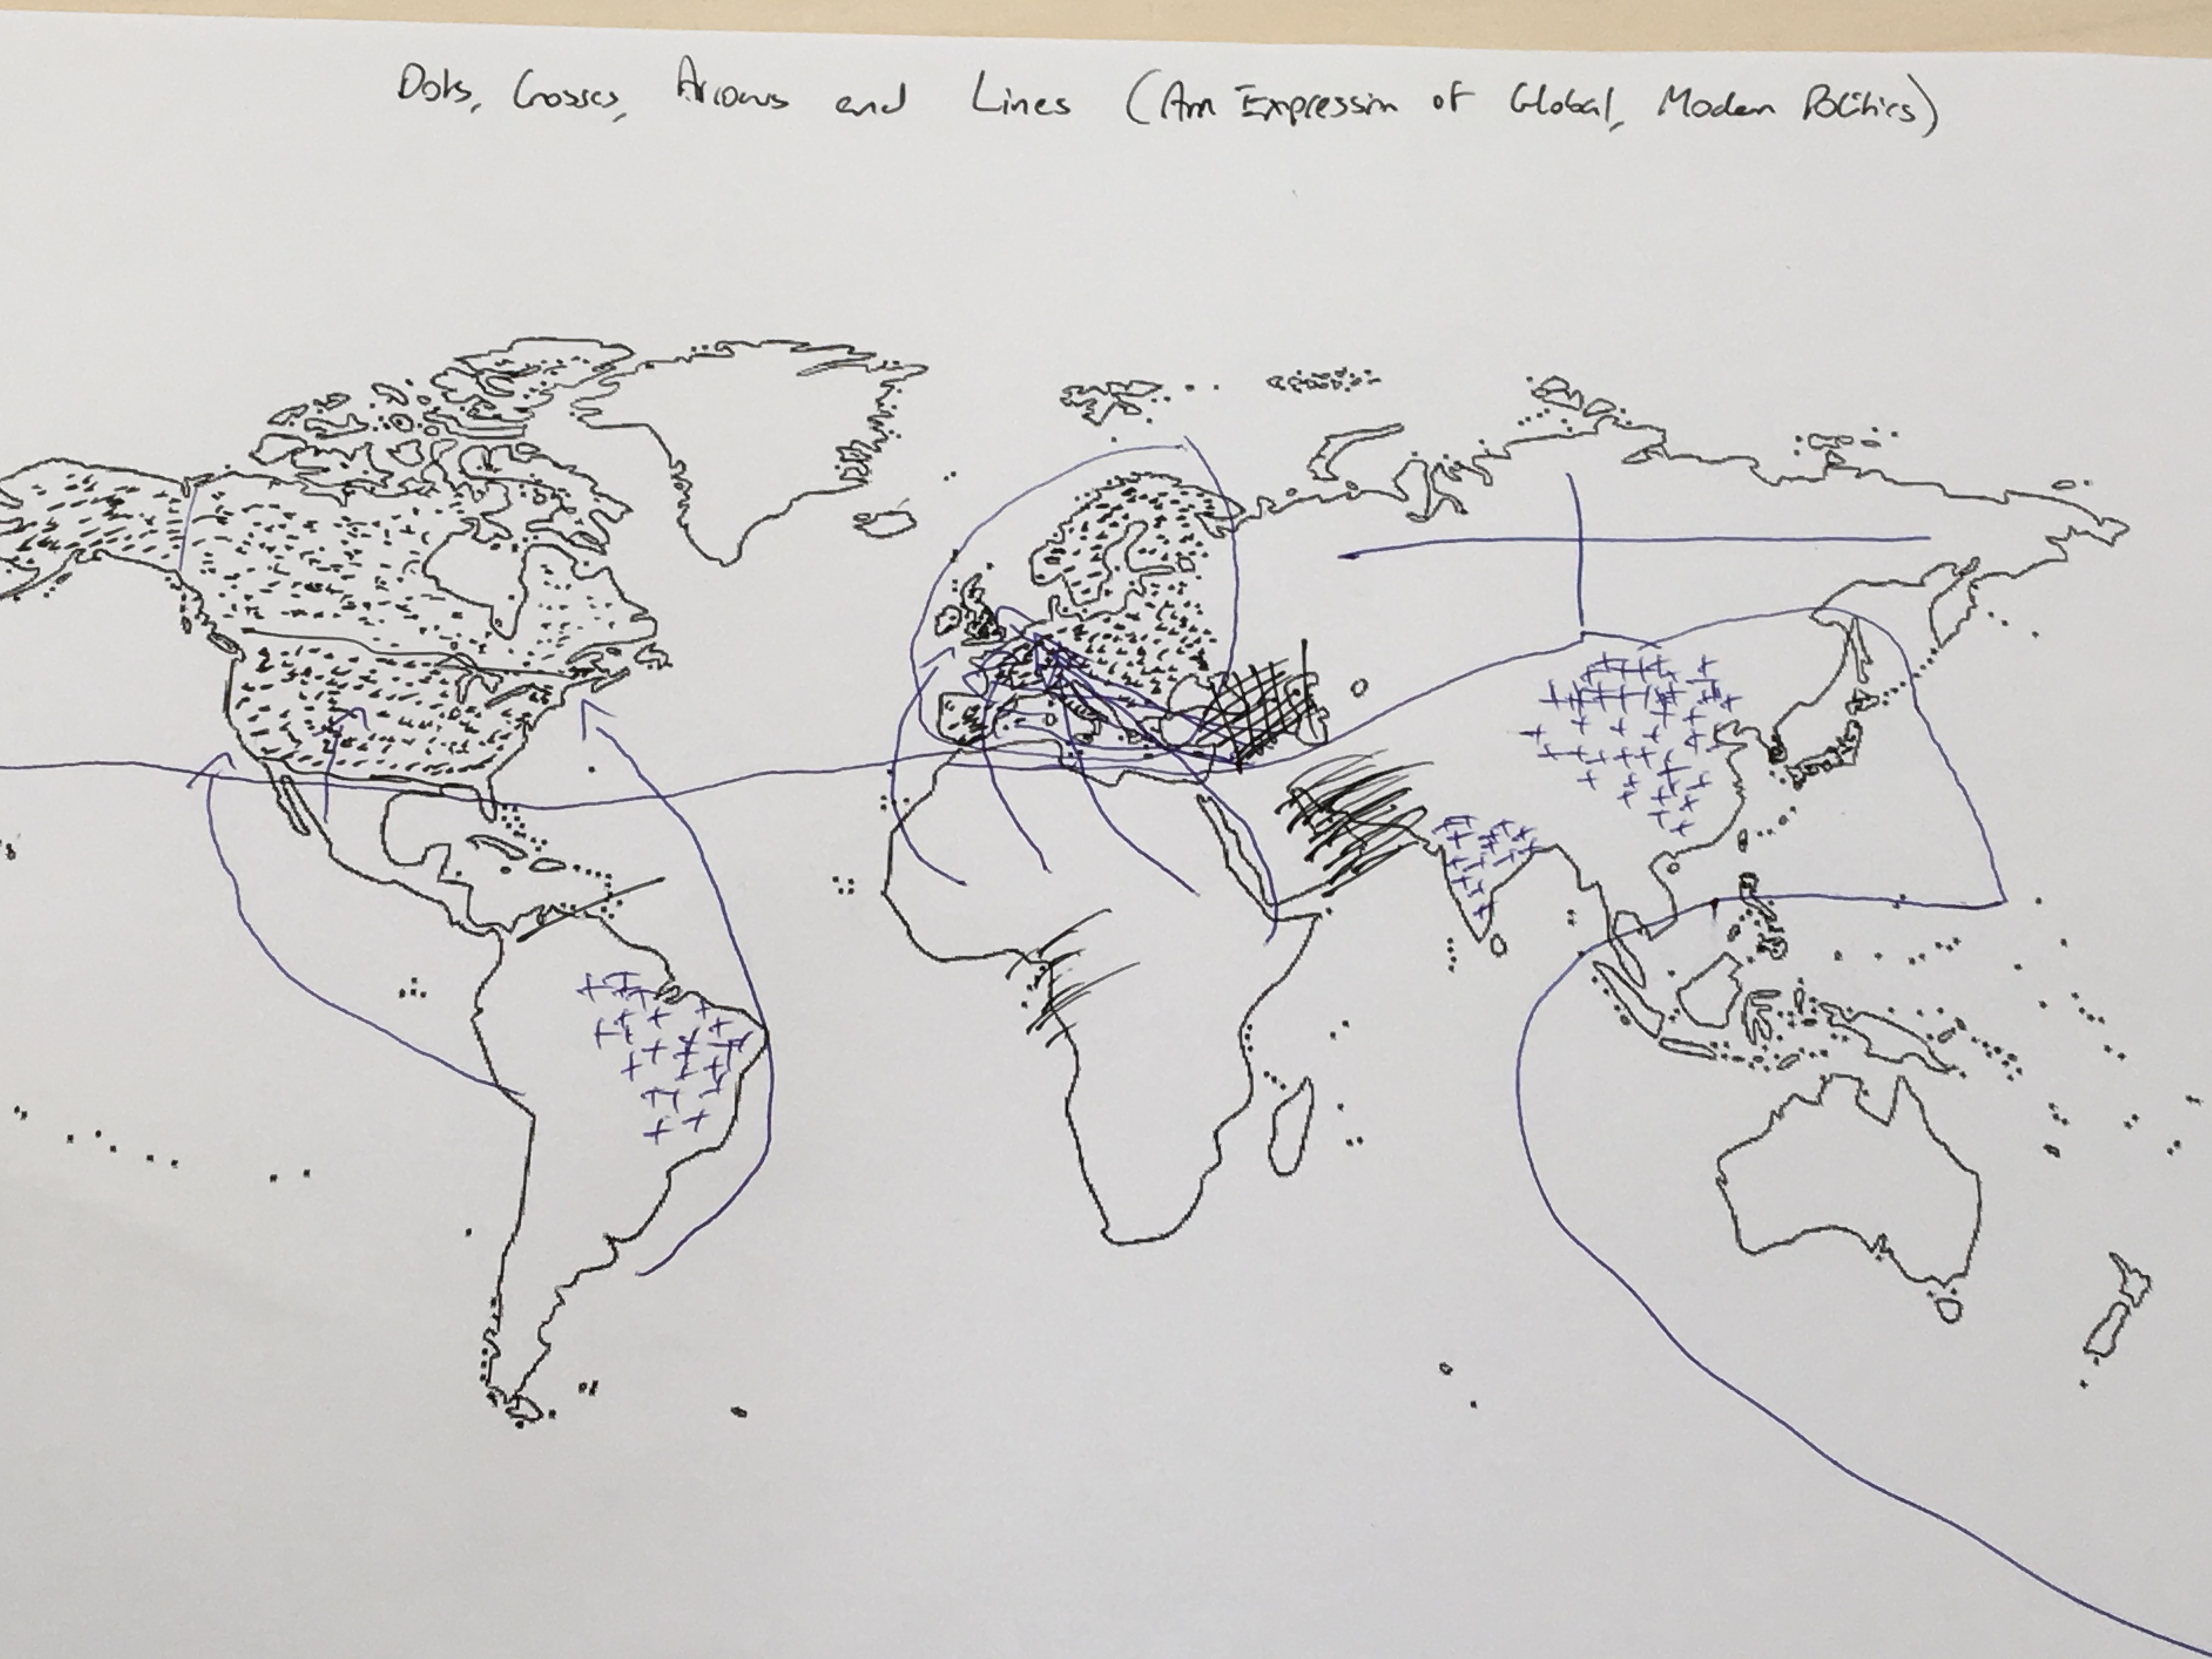 Dots, Crosses, Arrows and Lines (An Expression of Global, Modern Politics)